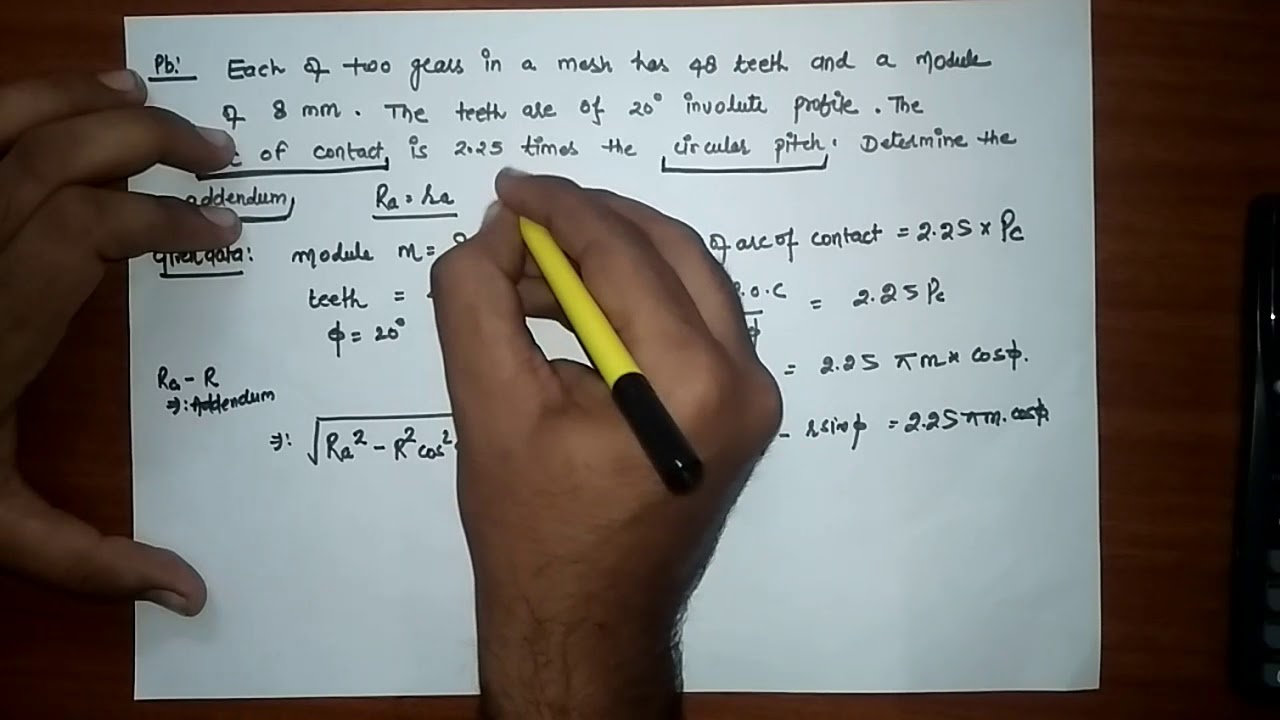 Pb:
Each of two gears in a mesh has 48 teeth and a module
of 8 mm. The teeth are of 20° involute profile. The
of contact is 2.25 times the circular pitch. Determine the
addendum Ra = ra
Given data: module m =
of arc of contact = 2.25 × Pc
teeth =
P.O.C = 2.25 Pc
φ = 20°
= 2.25 πm × cosφ.
Ra - R
⇒: Addendum
⇒: √Ra² - R²cos²
- rsinφ = 2.25 πm.cosφ